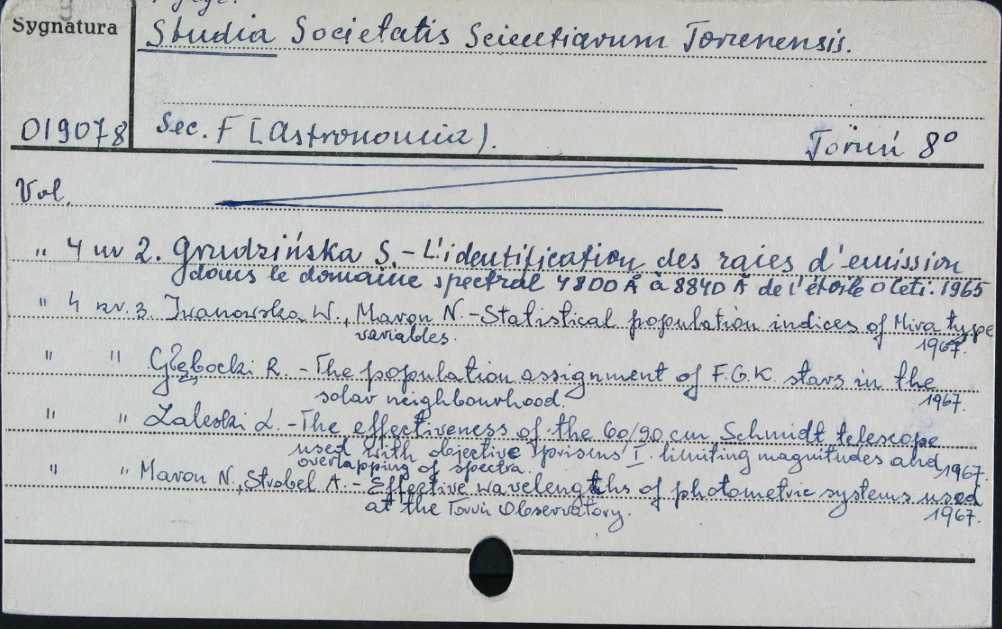 Sygnatura
Studia Societatis Scientiarum Torunensis.
019078
Sec. F (Astronomia).
Toruń 8°
Vol.
" 4 nr 2. Grudzińska S. - L'identification des raies d'émission
dans le domaine spectral 4800 Å à 8840 Å de l'étoile o Ceti. 1965
" 4 nr. 3. Iwanowska W., Maron N. - Statistical population indices of Mira type
variables. 1967.
" " Głębocki R. - The population assignment of F.G.K. stars in the
solar neighbourhood. 1967.
" " Zaleski L. - The effectiveness of the 60/90 cm Schmidt telescope
used with objective prisms I. limiting magnitudes and
overlapping of spectra. 1967.
" " Maron N., Strobel A. - Effective wavelengths of photometric systems used
at the Toruń Observatory. 1967.